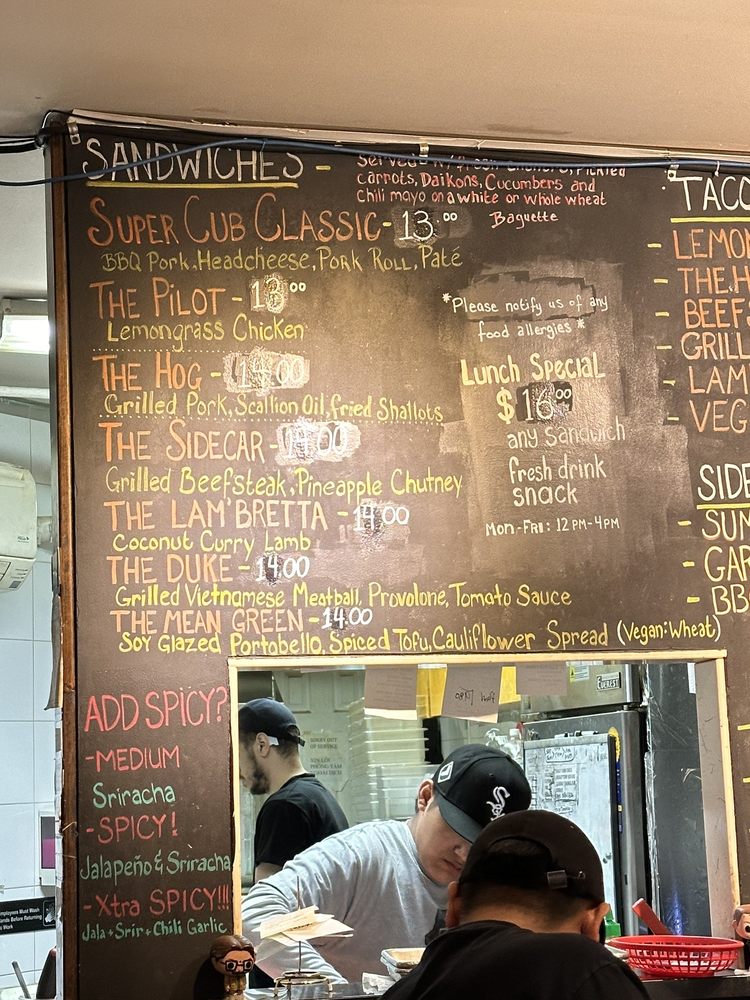 SANDWICHES -
carrots, Daikons, Cucumbers and
chili mayo on a white or whole wheat
Baguette
SUPER CUB CLASSIC - 13.00
BBQ Pork, Headcheese, Pork Roll, Paté
THE PILOT - 13.00
Lemongrass Chicken
THE HOG - 14.00
Grilled Pork, Scallion Oil, fried Shallots
THE SIDECAR - 14.00
Grilled Beefsteak, Pineapple Chutney
THE LAM'BRETTA - 14.00
Coconut Curry Lamb
THE DUKE - 14.00
Grilled Vietnamese Meatball, Provolone, Tomato Sauce
THE MEAN GREEN - 14.00
Soy Glazed Portobello, Spiced Tofu, Cauliflower Spread (Vegan: Wheat)
*Please notify us of any
food allergies*
Lunch Special
$16.00
any sandwich
fresh drink
snack
Mon-Fri: 12PM-4PM
TACO
- LEMON
- THE H
- BEEF
- GRILL
- LAM
- VEG
SIDE
- SUN
- GAR
- BB
ADD SPICY?
-MEDIUM
Sriracha
-SPICY!
Jalapeño & Sriracha
-Xtra SPICY!!!
Jala + Srir + Chili Garlic
EVEREST
Employees Must Wash
Hands Before Returning
to Work